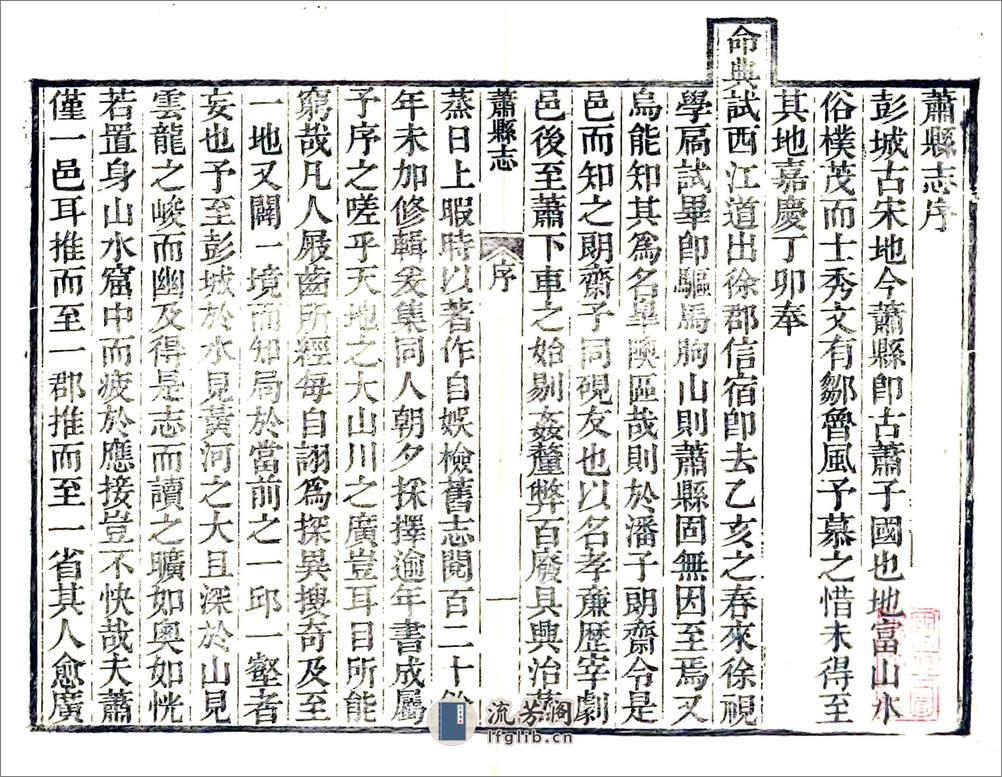 蕭縣志序
彭城古宋地今蕭縣卽古蕭子國也地富山水
俗樸茂而士秀文有鄒魯風予慕之惜未得至
其地嘉慶丁卯奉
命典試西江道出徐郡信宿卽去乙亥之春來徐視
學扃試畢卽驅馬朐山則蕭縣固無因至焉又
烏能知其爲名臯陝區哉則於潘子朗齋令是
邑而知之朗齋予同硯友也以名孝廉歷宰劇
邑後至蕭下車之始剔姦釐弊百廢具興治蕭
蕭縣志
序
一
蒸日上暇時以著作自娛檢舊志閱百二十餘
年未加修輯爰集同人朝夕採擇逾年書成屬
予序之嗟乎天地之大山川之廣豈耳目所能
窮哉凡人屐齒所經每自詡爲探異搜奇及至
一地又闢一境而知局於當前之一邱一壑者
妄也予至彭城於水見黃河之大且深於山見
雲龍之峻而幽及得是志而讀之曠如奧如恍
若置身山水窟中而疲於應接豈不快哉夫蕭
僅一邑耳推而至一郡推而至一省其人愈廣
流芳閣
lfglib.cn